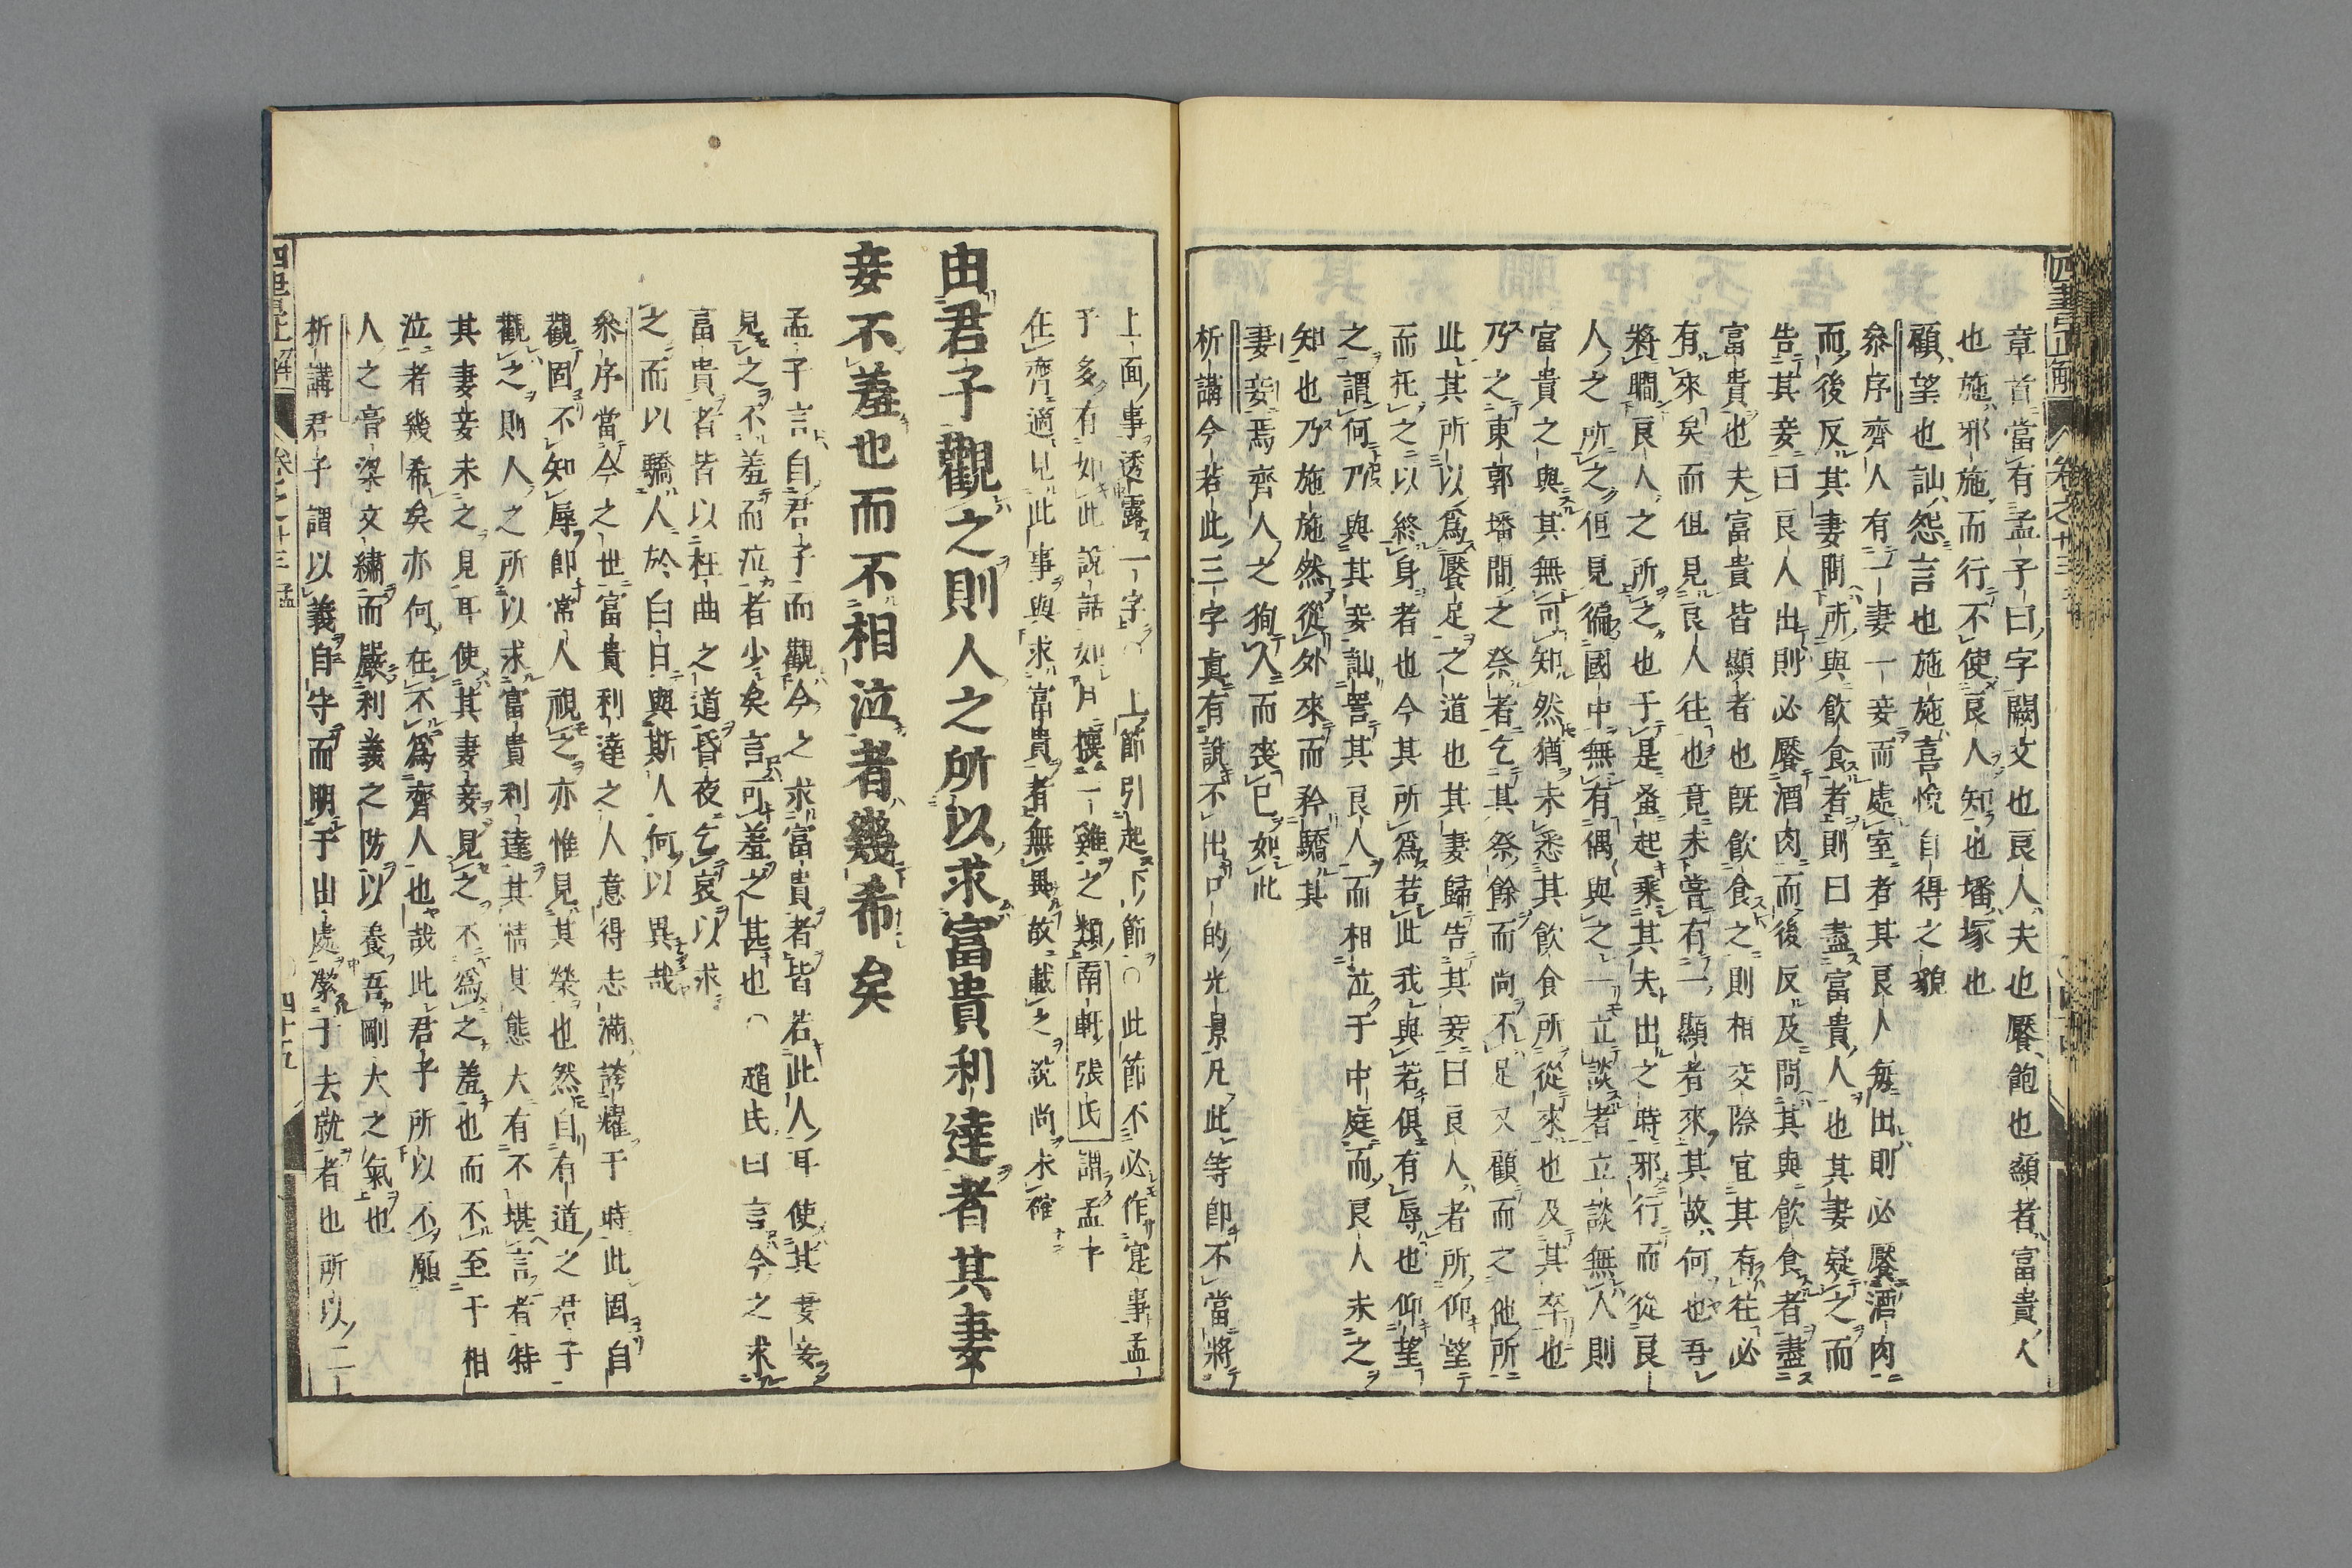 章首當有孟子曰字闕文也良人夫也饜飽也顯者富貴人
也施邪施而行不使良人知也墦塚也
顧望也訕怨言也施施喜悅自得之貌
叅序齊人有一妻一妾而處室者其良人每出則必饜酒肉
而後反其妻問所與飲食者則曰盡富貴人也其妻疑之而
告其妾曰良人出則必饜酒肉而後反及問其與飲食者盡
富貴也夫富貴皆顯者也旣飲食之則相交際宜其有往必
有來矣而但見良人往也竟未甞有一顯者來其故何也吾
將瞷良人之所之也于是蚤起乘其夫出之時邪行而從良
人之所之但見徧國中無有偶與之一立談者立談無人則
富貴之與其無可知然猶未悉其飲食所從來也及其卒也
乃之東郭墦間之祭者乞其祭餘而尚不足又顧而之他所
此其所以爲饜足之道也其妻歸告其妾曰良人者所仰望
而托之以終身者也今其所爲若此我與若俱有辱也仰望
之謂何乃與其妾訕詈其良人而相泣于中庭而良人未之
知也乃施施然從外來而矜驕其
妻妾焉齊人之狥人而喪己如此
析講今若此三字真有說不出口的光景凡此等即不當將
四書正解 卷之十三
上面事透露一字 上節引起下節○此節不必作寔事孟
子多有如此說話如月攘一雞之類南軒張氏謂孟子
在齊適見此事與求富貴者無異故載之說尚未確
由君子觀之則人之所以求富貴利達者其妻
妾不羞也而不相泣者幾希矣
孟子言自君子而觀今之求富貴者皆若此人耳使其妻妾
見之不羞而泣者少矣言可羞之甚也○趙氏曰言今之求
富貴者皆以枉曲之道昏夜乞哀以求
之而以驕人於白日與斯人何以異哉
叅序當今之世富貴利達之人意得志滿誇耀于時此固自
觀固不知辱卽常人視之亦惟見其榮也然自有道之君子
觀之則人之所以求富貴利達其情其態大有不堪言者特
其妻妾未之見耳使其妻妾見之不爲之羞也而不至于相
泣者幾希矣亦何在不爲齊人也哉此君子所以不願
人之膏粱文繡而嚴利義之防以養吾剛大之氣也
析講君子謂以義自守而明于出處潔于去就者也所以二
四書正解 卷之十三 孟 四十五